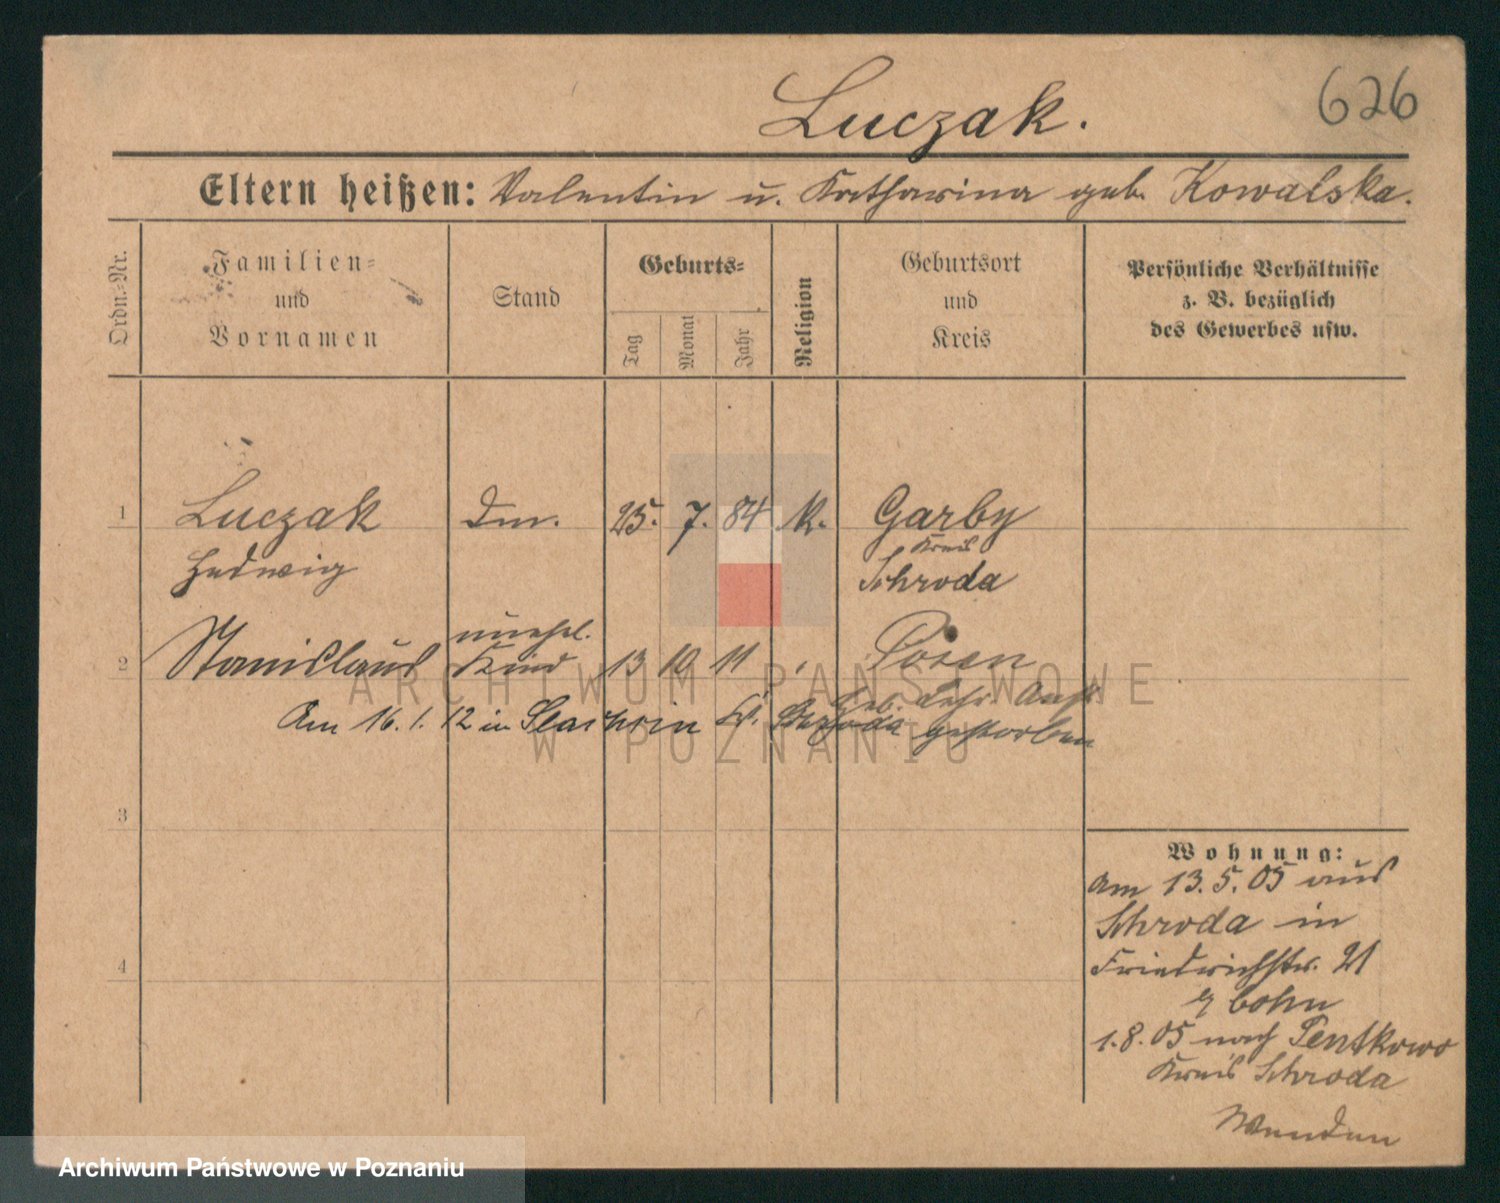 626
Luczak.
Eltern heißen: Valentin u. Katharina geb. Kowalska.
Ordn.-Nr.
Familien-
und
Vornamen
Stand
Geburts-
Tag
Monat
Jahr
Religion
Geburtsort
und
Kreis
Persönliche Verhältnisse
z. B. bezüglich
des Gewerbes usw.
1 Luczak Dm. 25. 7. 84 k. Garby
Kreis
Hedwig Schroda
unehel.
2 Stanislaus Kind 13 10 11 Posen
Geb. Lehr. Anst.
Am 16. 1. 12 in Kr. Schroda gestorben
3
4
Wohnung:
Am 13. 5. 05 aus
Schroda in
Friedrichstr. 21
b bohn
1. 8. 05 nach Pentkowo
Kreis Schroda
ARCHIWUM PAŃSTWOWE
W POZNANIU
Archiwum Państwowe w Poznaniu